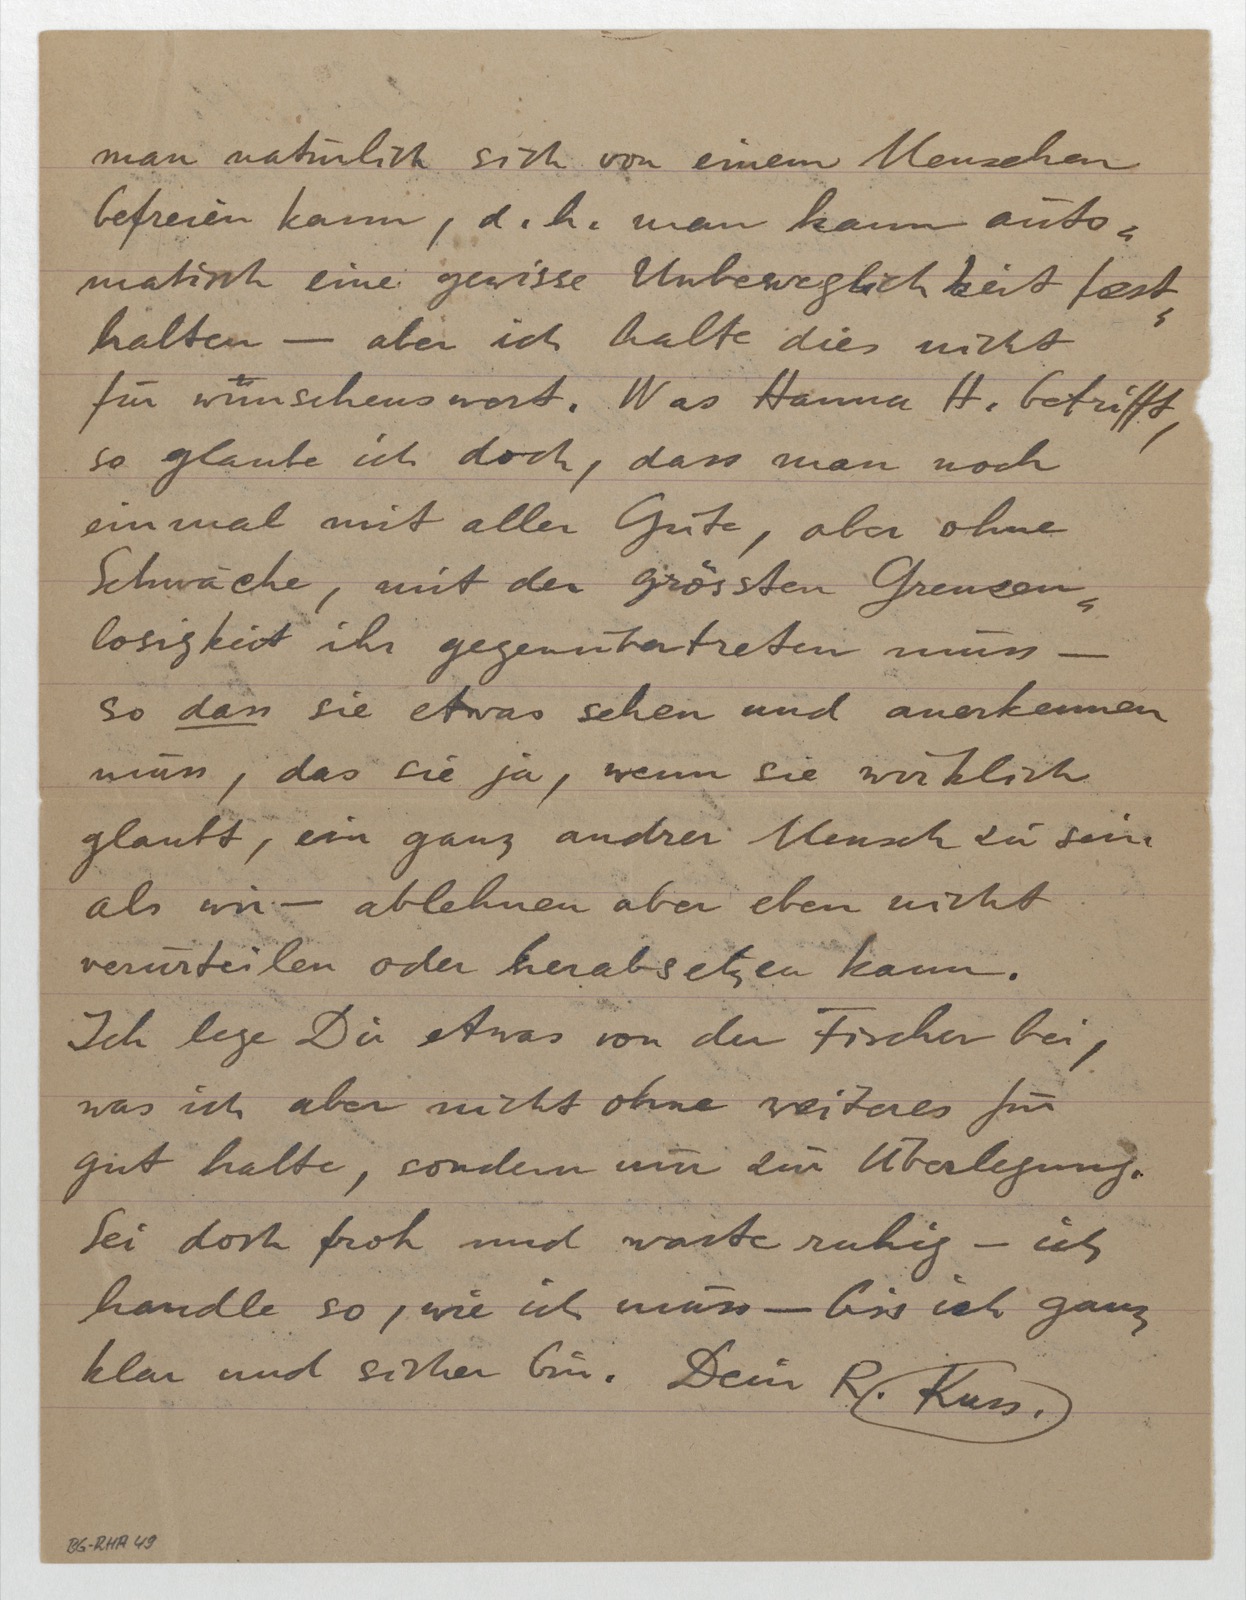 man natürlich sich von einem Menschen
befreien kann, d. h. man kann auto-
matisch eine gewisse Unbeweglichkeit fest-
halten — aber ich halte dies nicht
für wünschenswert. Was Hanna H. betrifft,
so glaube ich doch, dass man noch
einmal mit aller Güte, aber ohne
Schwäche, mit der grössten Grenzen-
losigkeit ihr gegenübertreten muss —
so dass sie etwas sehen und anerkennen
muss, das sie ja, wenn sie wirklich
glaubt, ein ganz andrer Mensch zu sein
als wir — ablehnen aber eben nicht
verurteilen oder herabsetzen kann.
Ich lege Dir etwas von der Fischer bei,
was ich aber nicht ohne weiteres für
gut halte, sondern nur zur Überlegung.
Sei doch froh und warte ruhig — ich
handle so, wie ich muss — bis ich ganz
klar und sicher bin. Dein R. Kuss.
BG-RHA 49